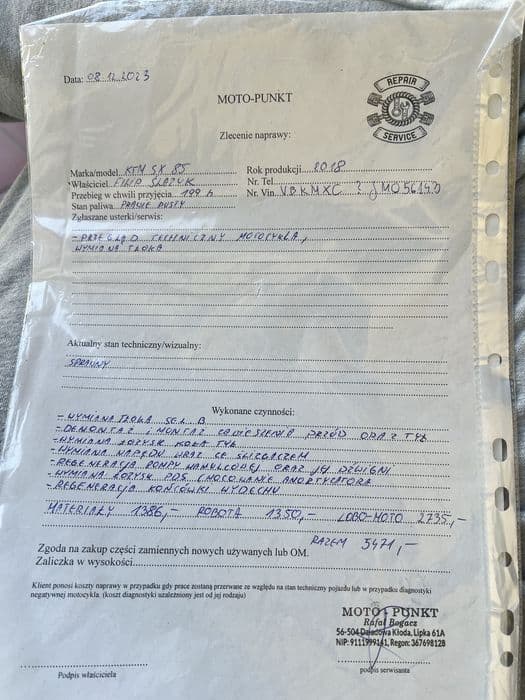 Data: 08.12.2023
REPAIR
SERVICE
MOTO-PUNKT
Zlecenie naprawy:
Marka/model KTM SX 85 Rok produkcji 2018
Właściciel FILIP Nr. Tel
Przebieg w chwili przyjęcia 199 h Nr. Vin
Stan paliwa PRAWIE PUSTY
Zgłaszane usterki/serwis:
- PRZEGLĄD TECHNICZNY MOTOCYKLA,
WYMIANA TŁOKA
Aktualny stan techniczny/wizualny:
SPRAWNY
Wykonane czynności:
- WYMIANA TŁOKA SEL. B
- DEMONTAŻ I MONTAŻ ZAWIESZENIA PRZÓD ORAZ TYŁ
- WYMIANA ŁOŻYSK KOŁA TYŁ
- WYMIANA NAPĘDU WRAZ ZE ŚLIZGACZEM
- REGENERACJA POMPY HAMULCOWEJ ORAZ JEJ DŹWIGNI
- WYMIANA ŁOŻYSK PDS (MOCOWANIE AMORTYZATORA
- REGENERACJA KOŃCÓWKI WYDECHU
MATERIAŁY 1386,- ROBOTA 1350,- LOBO-MOTO 2735,-
RAZEM 5471,-
Zgoda na zakup części zamiennych nowych używanych lub OM.
Zaliczka w wysokości
Klient ponosi koszty naprawy w przypadku gdy prace zostaną przerwane ze względu na stan techniczny pojazdu lub w przypadku diagnostyki
negatywnej motocykla. (koszt diagnostyki uzależniony jest od jej rodzaju)
MOTO-PUNKT
Rafał Bogacz
56-504 Dziadowa Kłoda, Lipka 61A
NIP: 9111999141, Regon: 367698128
Podpis właściciela
podpis serwisanta